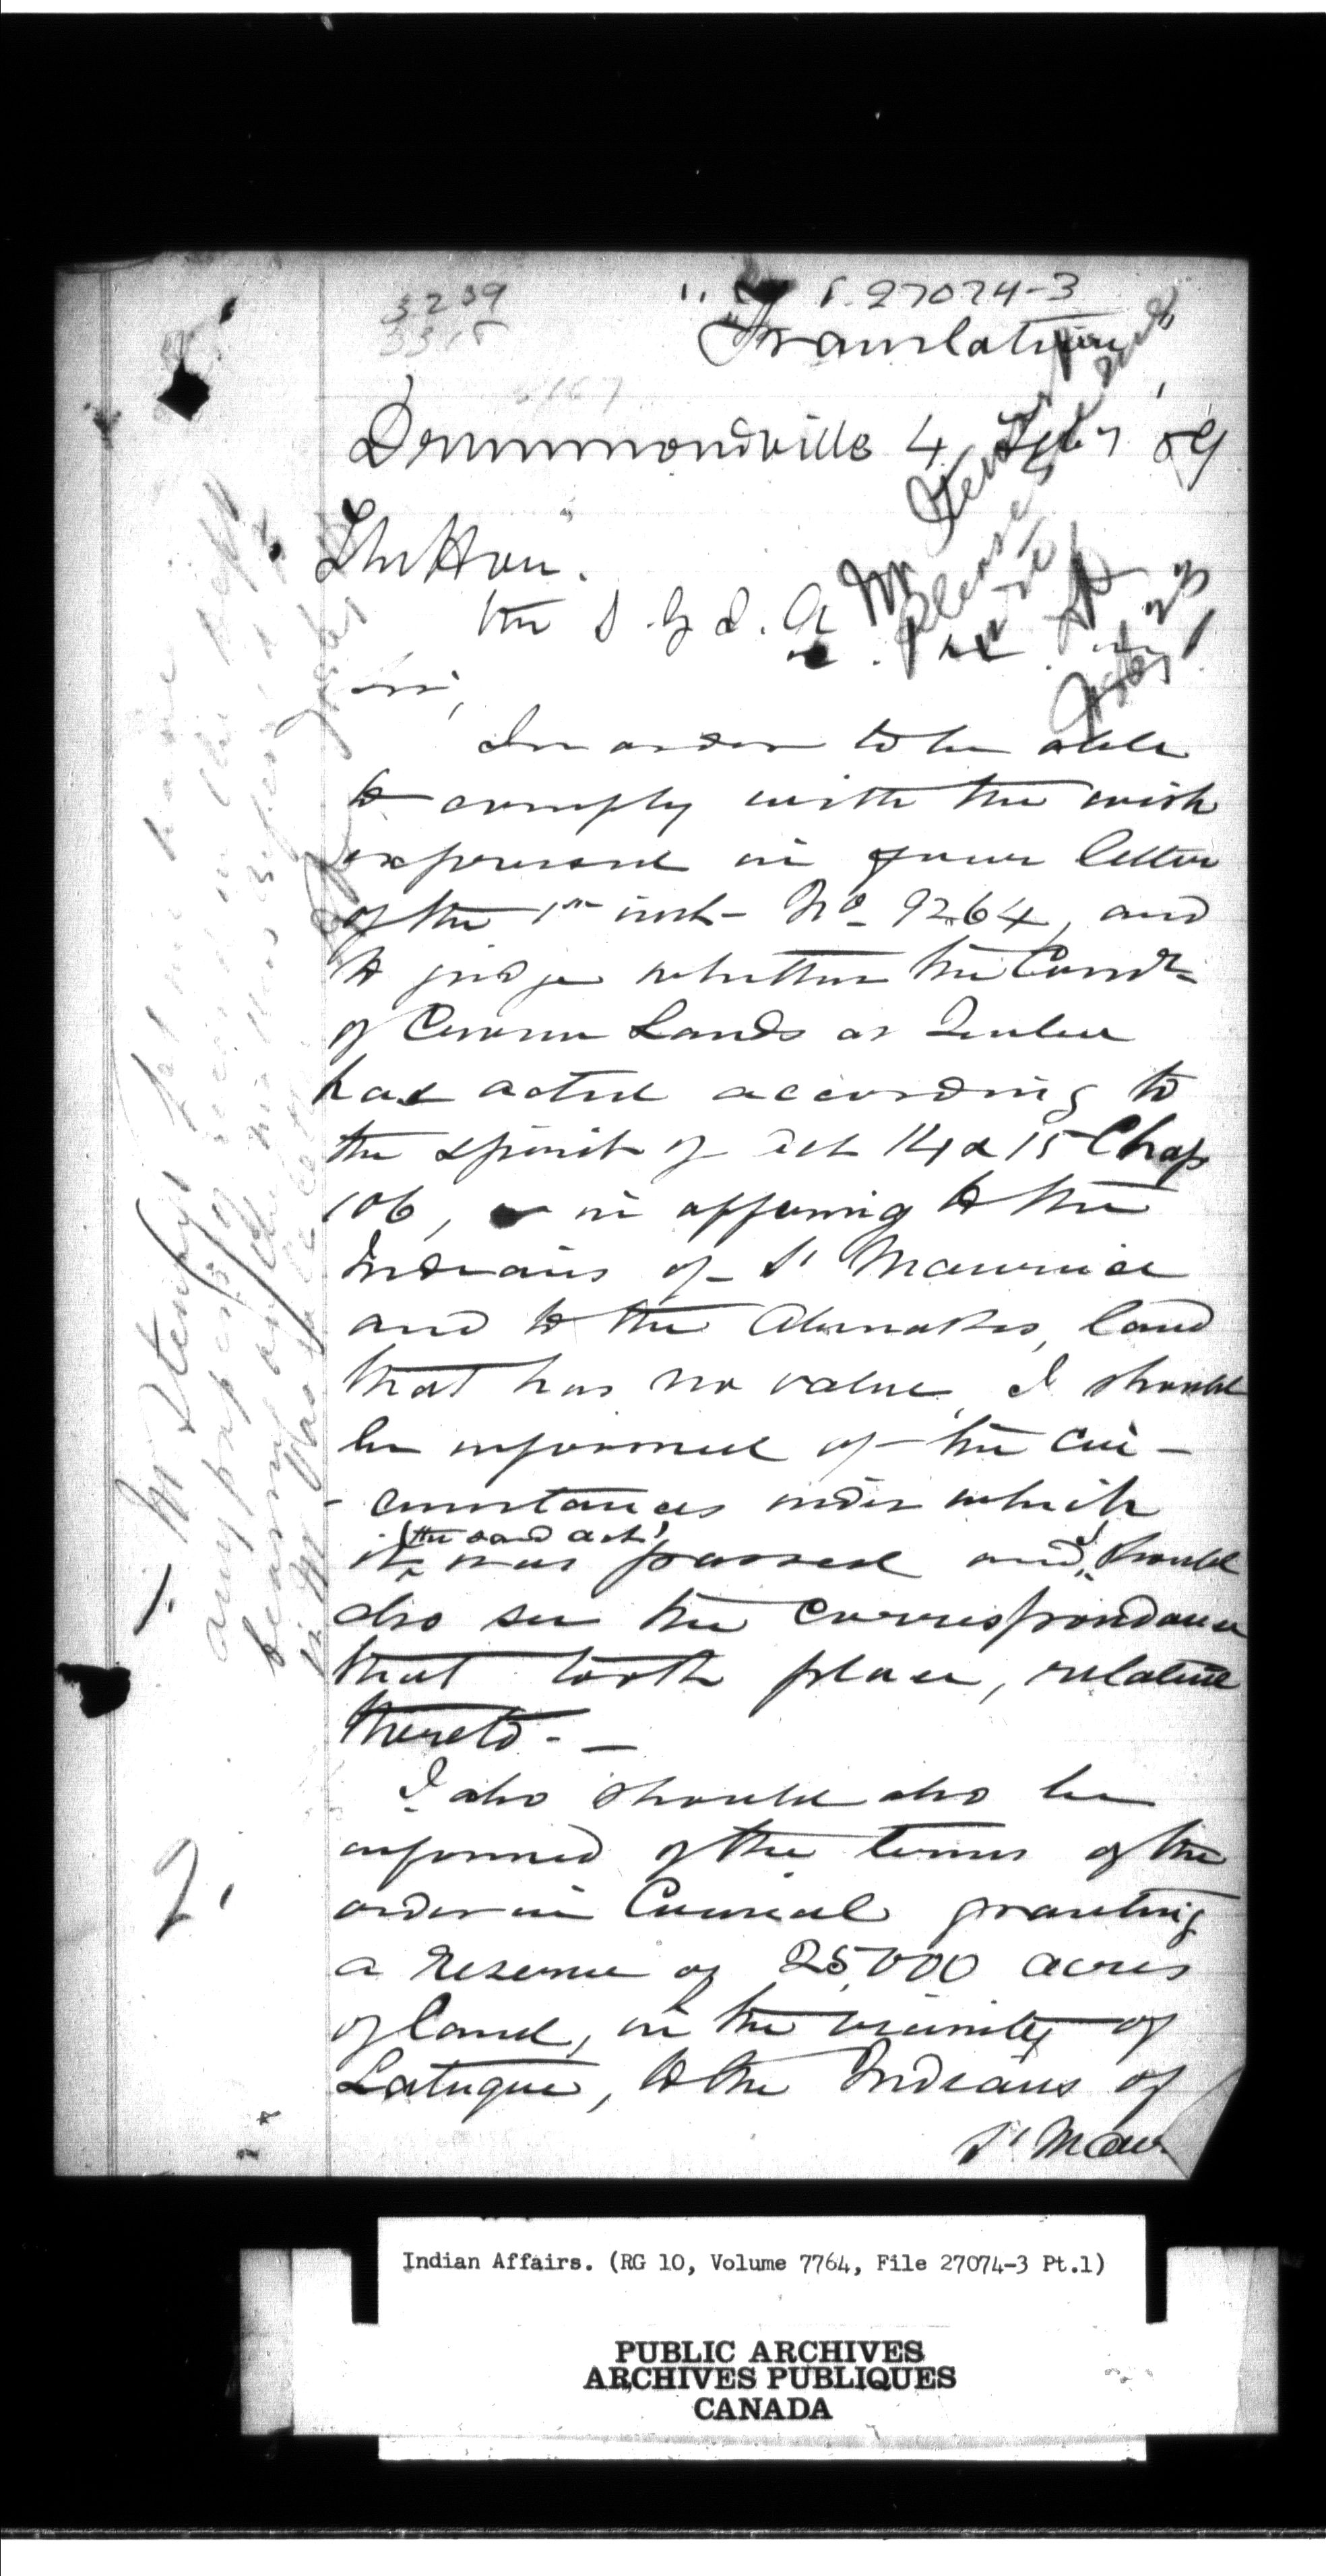 3239
27074-3
"Translation"
Drummondville 4 Feby 89
The Hon.
the S. G. I. A
Sir,
In order to be able
to comply with the wish
expressed in your letter
of the 1st inst- No 9264, and
to judge whether the Comr
of Crown Lands at Quebec
has acted according to
the spirit of act 14 & 15 Chap
106, in offering to the
Indians of St Maurice
and to the Abenakis, land
that has no value, I should
be informed of the cir-
-cumstances under which
it (the said act) was passed and, should
also see the correspondance
that took place, relative
thereto. -
I also should also be
informed of the terms of the
order in Council granting
a reserve of 25,000 acres
of land, in the vicinity of
Latuque, to the Indians of
St Mau
1. Mr Stewart let me have
any papers of record in the Dept
2.
Mr
please
Feby
Indian Affairs. (RG 10, Volume 7764, File 27074-3 Pt.1)
PUBLIC ARCHIVES
ARCHIVES PUBLIQUES
CANADA